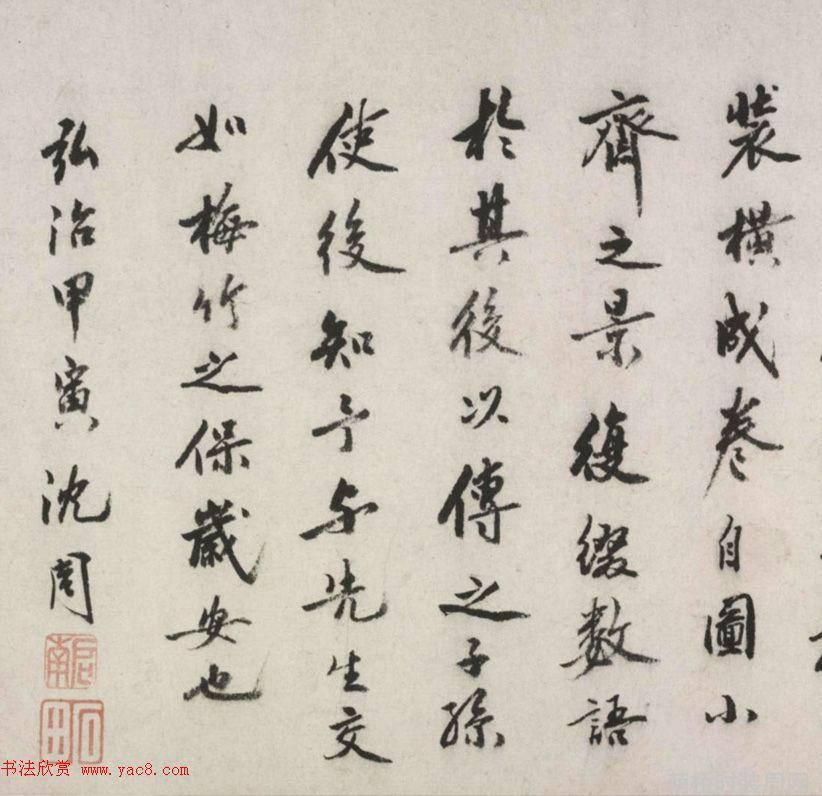 裝橫成卷自圖小
齊之景後綴數語
於其後以傳之子孫
使後知予與先生交
如梅竹之保歲安也
弘治甲寅沈周
啟南
石田
书法欣赏 www.yac8.com